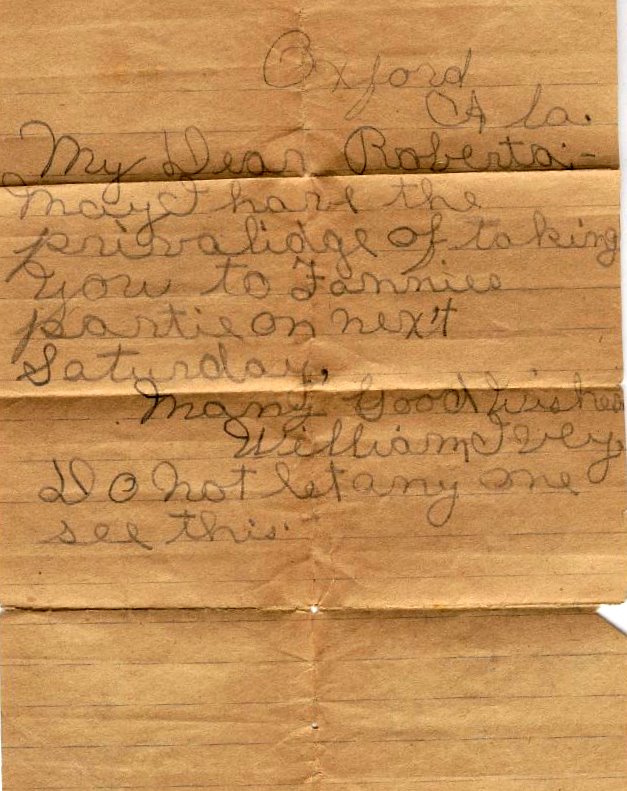 Oxford
Ala.
My Dear Roberta:-
May I have the
privalidge of taking
you to Fannies
partie on next
Saturday,
Many Good Wishes
William Ivey
Do not let any one
see this.